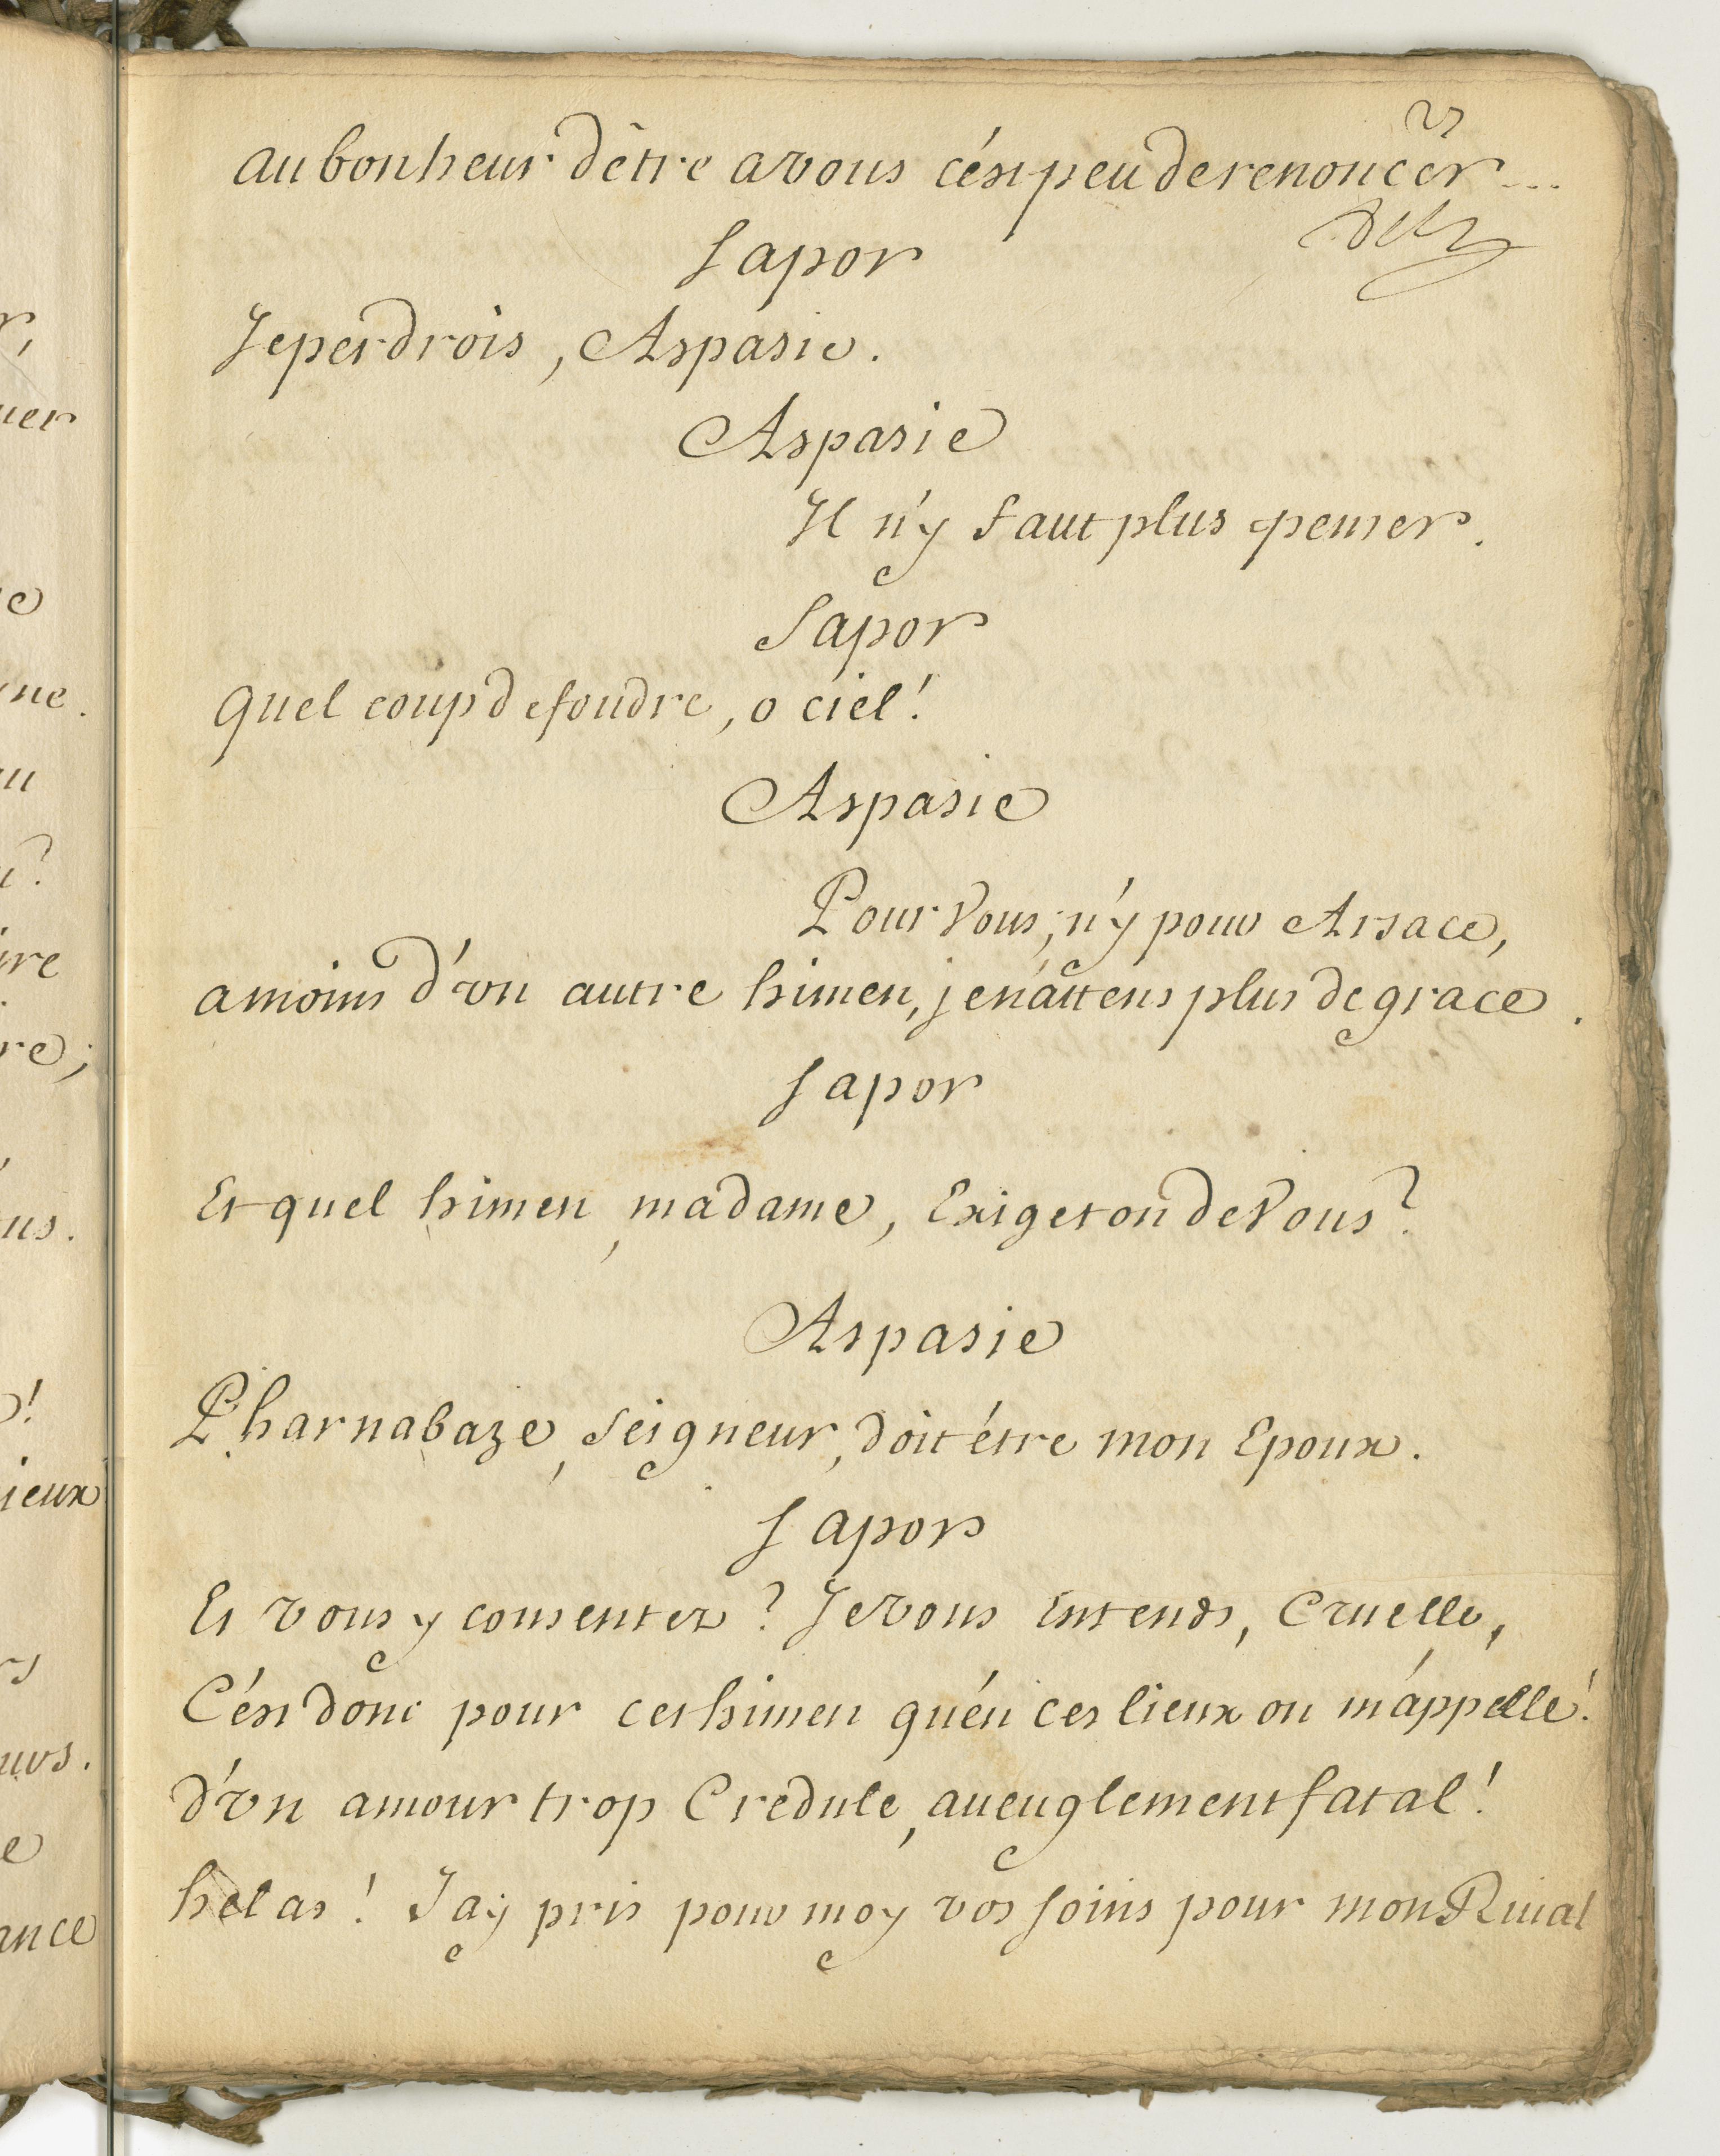 au bonheur dêtre a vous cést peu de renoncer ...
Sapor
Je perdrois, Aspasie.
Aspasie
Il n'y faut plus penser.
Sapor
Quel coup de foudre, o ciel!
Aspasie
Pour Vous, n'y pour Arsace,
a moins d'vn autre himen, je n'attens plus de grace.
Sapor
Et quel himen, madame, Exiget on de Vous?
Aspasie
Pharnabaze, Seigneur, doit étre mon Epoux.
Sapor
Et vous y consentez? Je vous Entends, Cruelle,
Cést donc pour cet himen qu'én ces lieux on m'appelle!
d'vn amour trop Credule, aueuglement fatal!
helas! J'ay pris pour moy vos soins pour mon Riual
r,
uer
e
ne.
u
?
ire
re;
us.
!
ieux
rs
urs.
e
ance